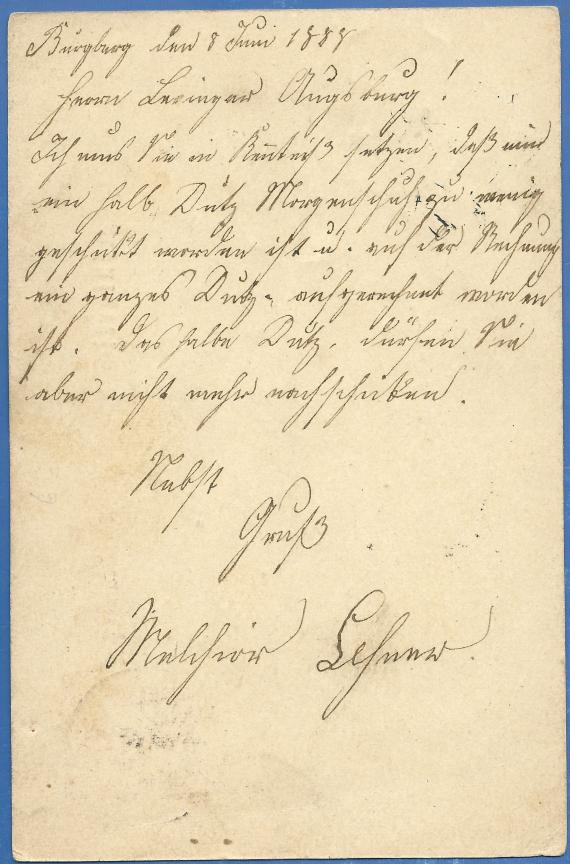 Burgberg den 8 Juni 1888
Herrn Augsburg!
Ich mus Sie in Kentniß setzen, daß mir
ein halb Dutz Morgenschuh zu wenig
geschikt worden ist u. auf der Rechnung
ein ganzes Dutz. aufgerechnet worden
ist. Das halbe Dutz. dürfen Sie
aber nicht mehr nachschiken.
Nebst
Gruß
Melchior Lehner.